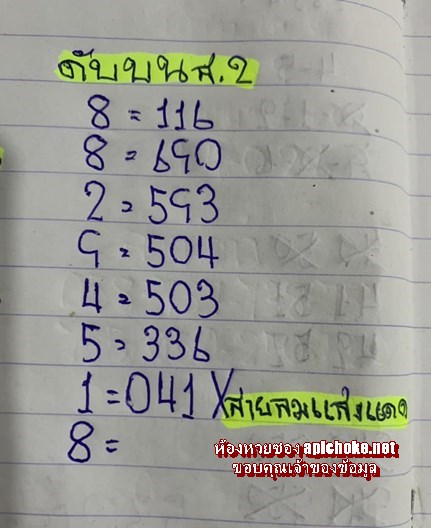 ดับบนส.2
8=116
8=690
2=593
9=504
4=503
5=336
1=041X สายลมแสงแดด
8=
ห้องหวยซอง apichoke.net
ขอบคุณเจ้าของข้อมูล